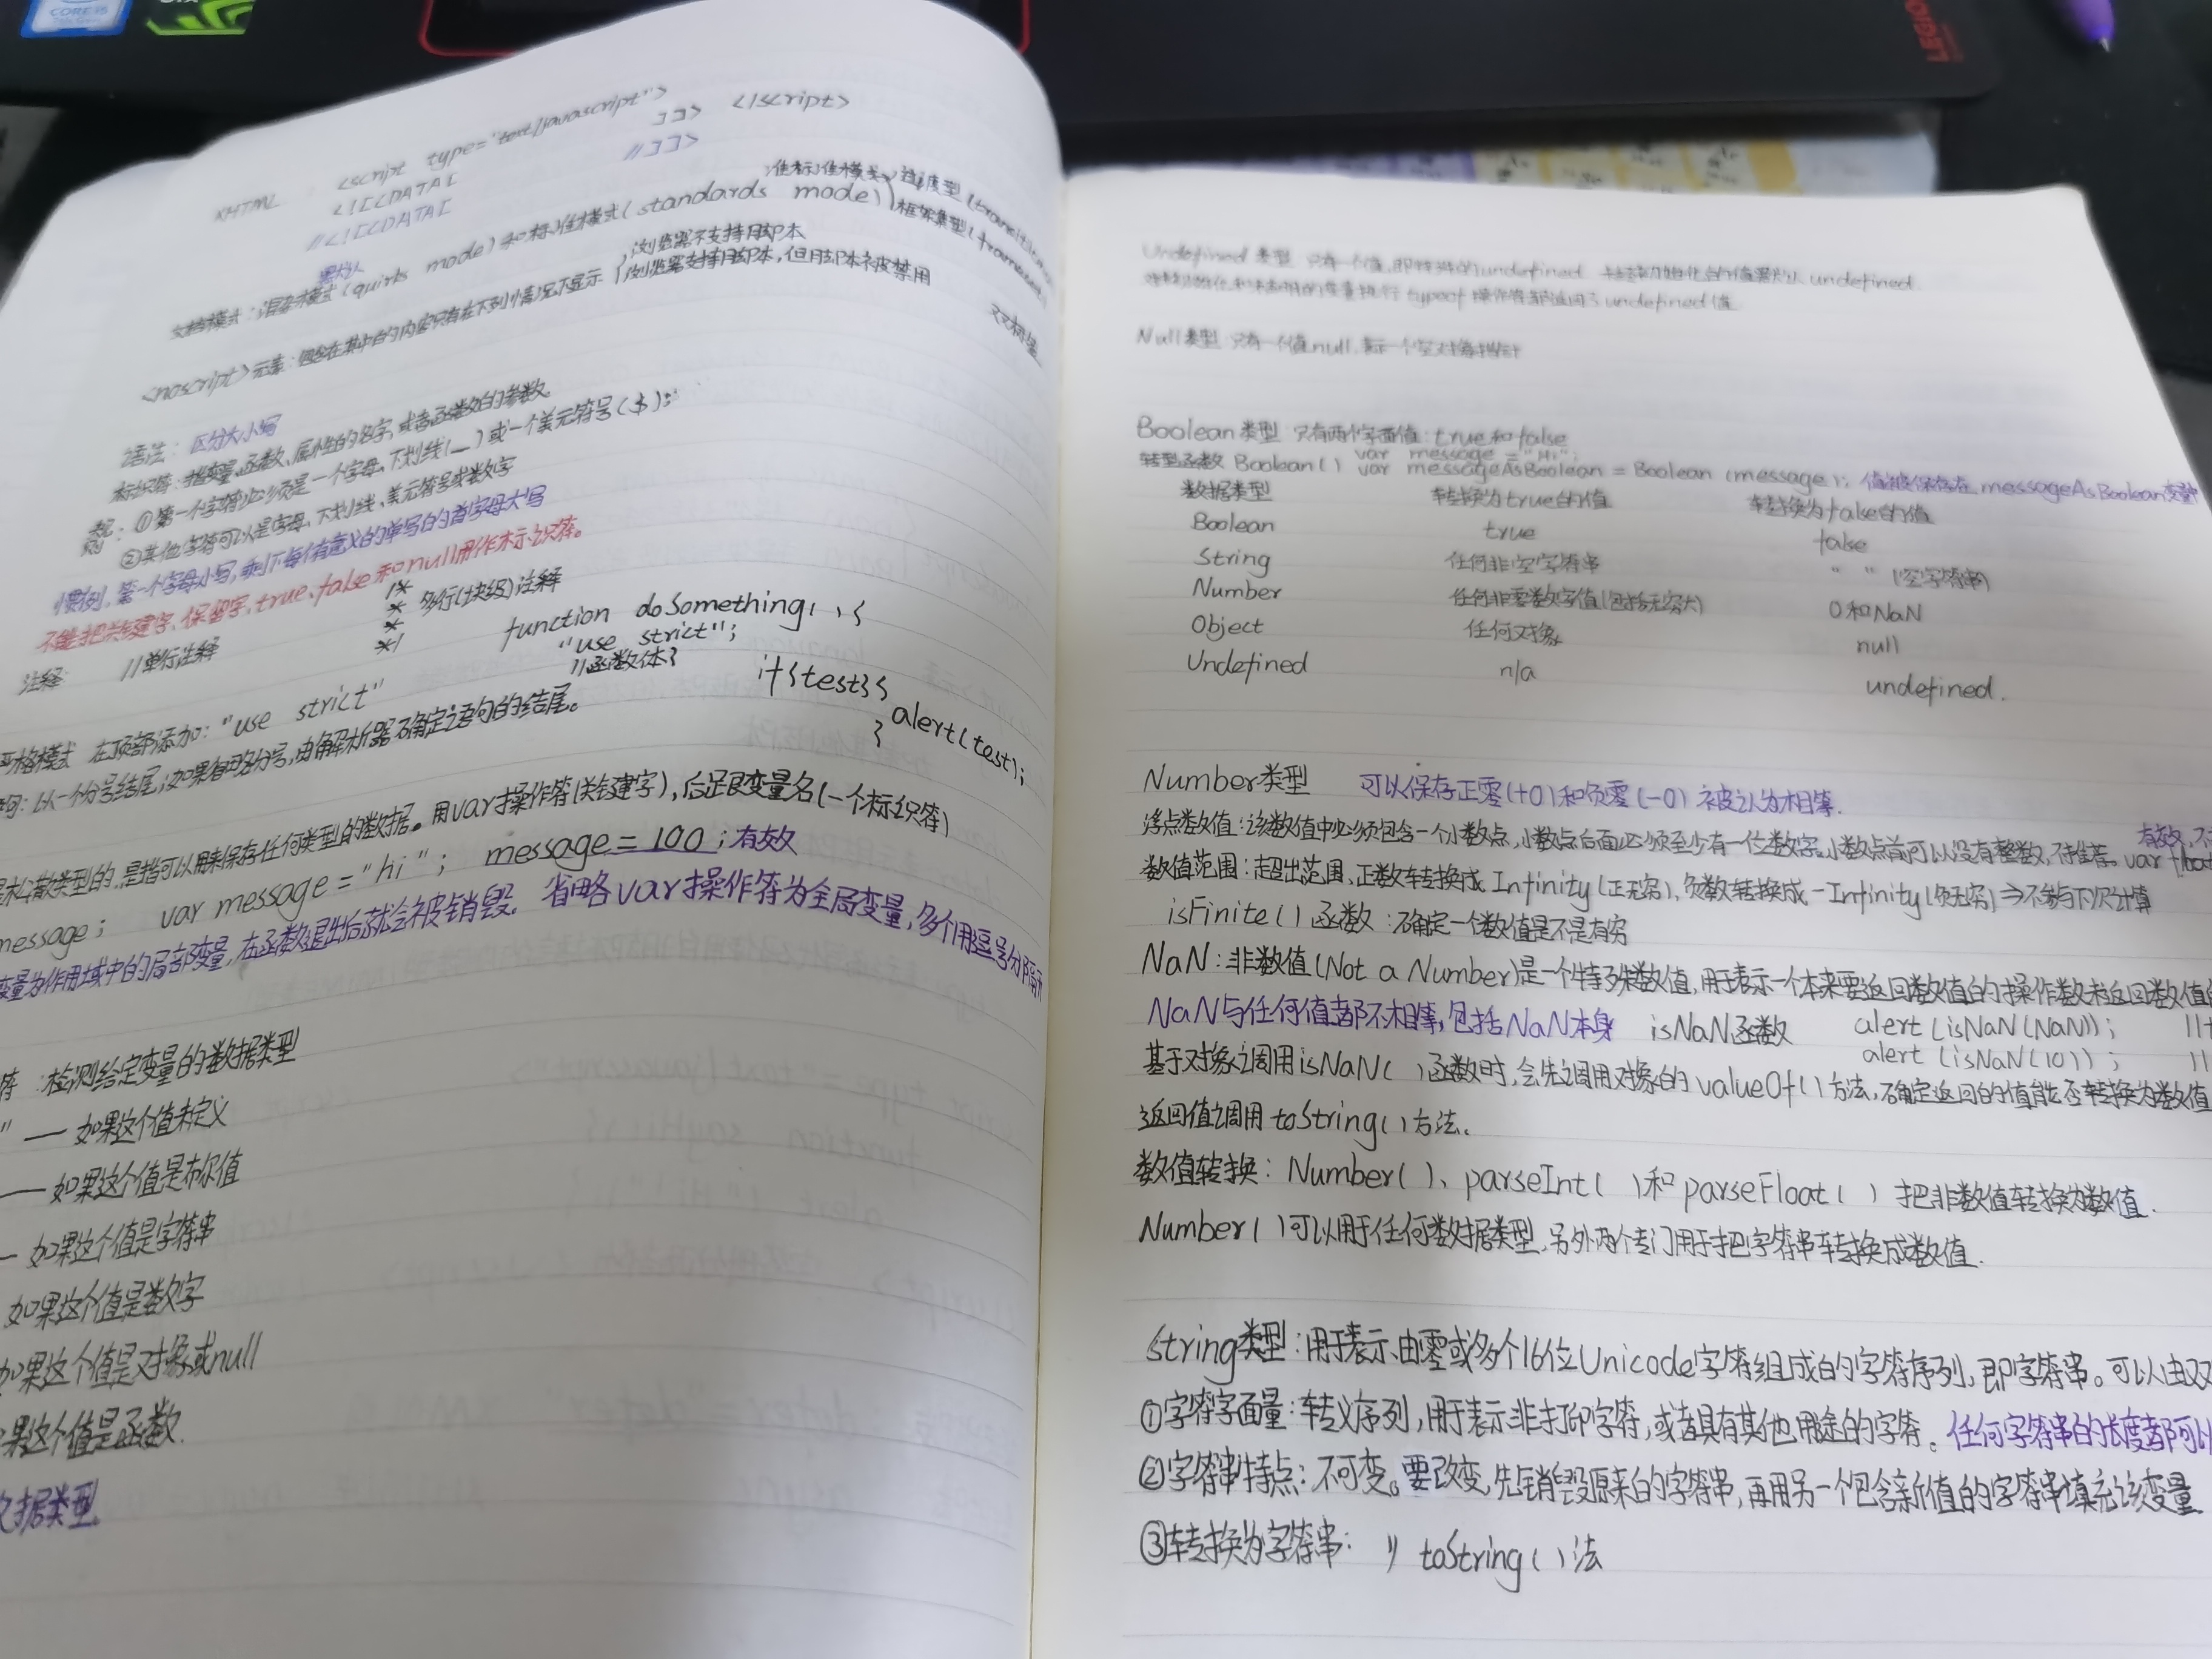 CORE i5
LEGION
XHTML <script type="text/javascript">
<![CDATA[ ]]> </script>
//<![CDATA[ //]]>
默认
文档模式：混杂模式(quirks mode)和标准模式(standards mode) 准标准模式、过渡型(transitional
框架集型(frameset)
<noscript>元素：包含在其中的内容只有在下列情况下显示
浏览器不支持脚本
浏览器支持脚本，但脚本被禁用
语法：区分大小写
标识符：指变量、函数、属性的名字，或者函数的参数。
规则：①第一个字符必须是一个字母、下划线(_)或一个美元符号($);
②其他字符可以是字母、下划线、美元符号或数字
惯例，第一个字母小写，剩下每个有意义的单写的首字母大写
不能把关键字、保留字、true、false和null用作标识符。
注释 //单行注释
/*
* 多行(块级)注释
*
*/
function doSomething(){
"use strict";
//函数体}
严格模式 在顶部添加："use strict"
if{test}{
alert(test);
}
句：以一个分号结尾；如果省略分号，由解析器确定语句的结尾。
是松散类型的，是指可以用来保存任何类型的数据。用var操作符(关键字)，后跟变量名(一个标识符)
message； var message="hi"； message = 100；有效
变量为作用域中的局部变量，在函数退出后就会被销毁。省略var操作符为全局变量，多个用逗号分隔
符：检测给定变量的数据类型
" — 如果这个值未定义
— 如果这个值是布尔值
— 如果这个值是字符串
如果这个值是数字
如果这个值是对象或null
果这个值是函数.
据类型.
Undefined 类型 只有一个值，即特殊的undefined undefined.
typeof 操作符 undefined值
Null类型 只有一个值null，表示一个空对象指针
Boolean类型 只有两个字面值：true和false
var message = "Hi";
转型函数 Boolean() var messageAsBoolean = Boolean (message); 值被保存在messageAsBoolean变量
数据类型 转换为true的值 转换为false的值
Boolean true false
String 任何非空字符串 " " (空字符串)
Number 任何非零数字值(包括无穷大) 0和NaN
Object 任何对象 null
Undefined n/a undefined.
Number类型 可以保存正零(+0)和负零(-0) 被认为相等.
有效,不
浮点数值：该数值中必须包含一个小数点，小数点后面必须至少有一位数字。小数点前可以没有整数，不推荐。var float
数值范围：超出范围、正数转换成 Infinity(正无穷)，负数转换成 -Infinity(负无穷)⇒不参与下次计算
isFinite()函数：确定一个数值是不是有穷
NaN：非数值(Not a Number)是一个特殊数值，用于表示一个本来要返回数值的操作数未返回数值
NaN与任何值都不相等，包括NaN本身 isNaN函数 alert (isNaN(NaN)); //
alert (isNaN(10)); //
基于对象调用isNaN()函数时，会先调用对象的 valueOf()方法，确定返回的值能否转换为数值
返回值调用 toString()方法.
数值转换：Number()、parseInt()和parseFloat() 把非数值转换为数值.
Number()可以用于任何数据类型，另外两个专门用于把字符串转换成数值.
String类型：用于表示由零或多个16位Unicode字符组成的字符序列，即字符串。可以由双
①字符字面量：转义序列，用于表示非打印字符，或者具有其他用途的字符。任何字符串的长度都可以
②字符串特点：不可变。要改变，先销毁原来的字符串，再用另一个包含新值的字符串填充该变量
③转换为字符串： 1) toString()法